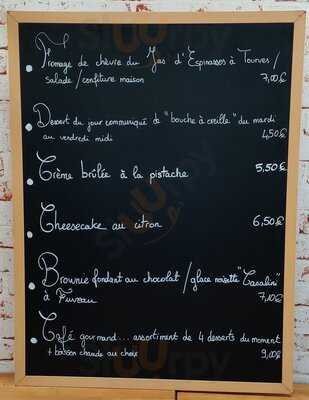 Fromage de chèvre du Mas d'Espinasses à Tourves /
Salade / confiture maison 7,00€
Dessert du jour communiqué de "bouche à oreille" du mardi
au vendredi midi 4,50€
Crème brûlée à la pistache 5,50€
Cheesecake au citron 6,50€
Brownie fondant au chocolat / glace noisette "Casalini"
à Fuveau 7,10€
Café gourmand... assortiment de 4 desserts du moment
+ boisson chaude au choix 9,00€